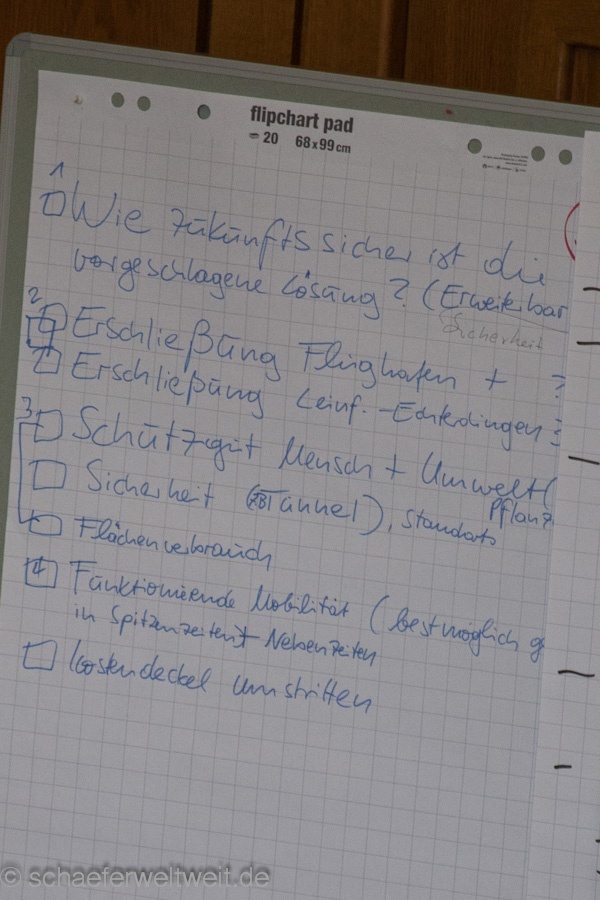 flipchart pad
20 68 x 99 cm
1
Wie zukunftssicher ist die
vorgeschlagene Lösung? (Erweiterbar
Sicherheit
2
Erschließung Flughafen + ?
Erschließung Leinf.-Echterdingen
3
Schutzgut Mensch + Umwelt (
Pflanz
Sicherheit (Tunnel), Standorts
Flächenverbrauch
4 Funktionierende Mobilität (bestmöglich g
in Spitzenzeiten + Nebenzeiten
Kostendeckel umstritten
© schaeferweltweit.de